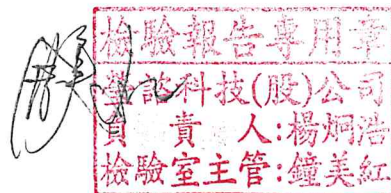 檢驗報告專用章
諮科技(股)公司
負責人:楊炯浩
檢驗室主管:鐘美紅